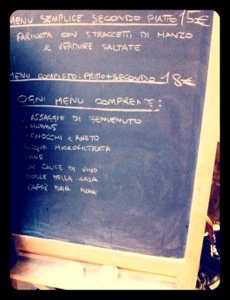 MENU SEMPLICE SECONDO PIATTO 15€
FARINATA CON STRACCETTI DI MANZO
E VERDURE SALTATE
MENU COMPLETO: PRIMO+SECONDO 18€
OGNI MENU COMPRENDE:
ASSAGGIO DI BENVENUTO
HUMMUS
FINOCCHI E ANETO
ACQUA MICROFILTRATA
PANE
UN CALICE DI VINO
DELLA CASA
CAFFÈ DALLA MOKA